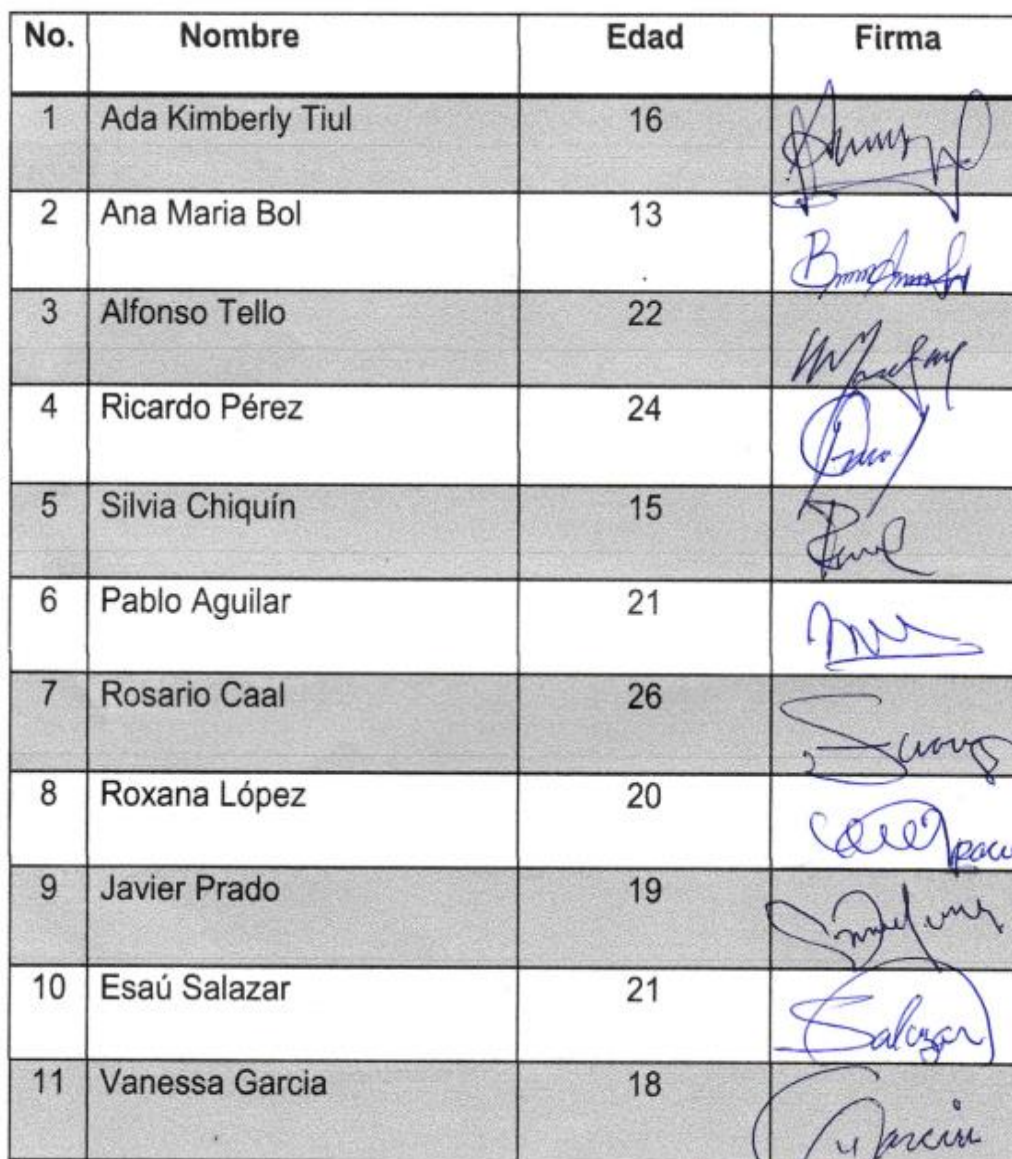 No. Nombre Edad Firma
1 Ada Kimberly Tiul 16
2 Ana Maria Bol 13
3 Alfonso Tello 22
4 Ricardo Pérez 24
5 Silvia Chiquín 15
6 Pablo Aguilar 21
7 Rosario Caal 26
8 Roxana López 20
9 Javier Prado 19
10 Esaú Salazar 21 Salazar
11 Vanessa Garcia 18